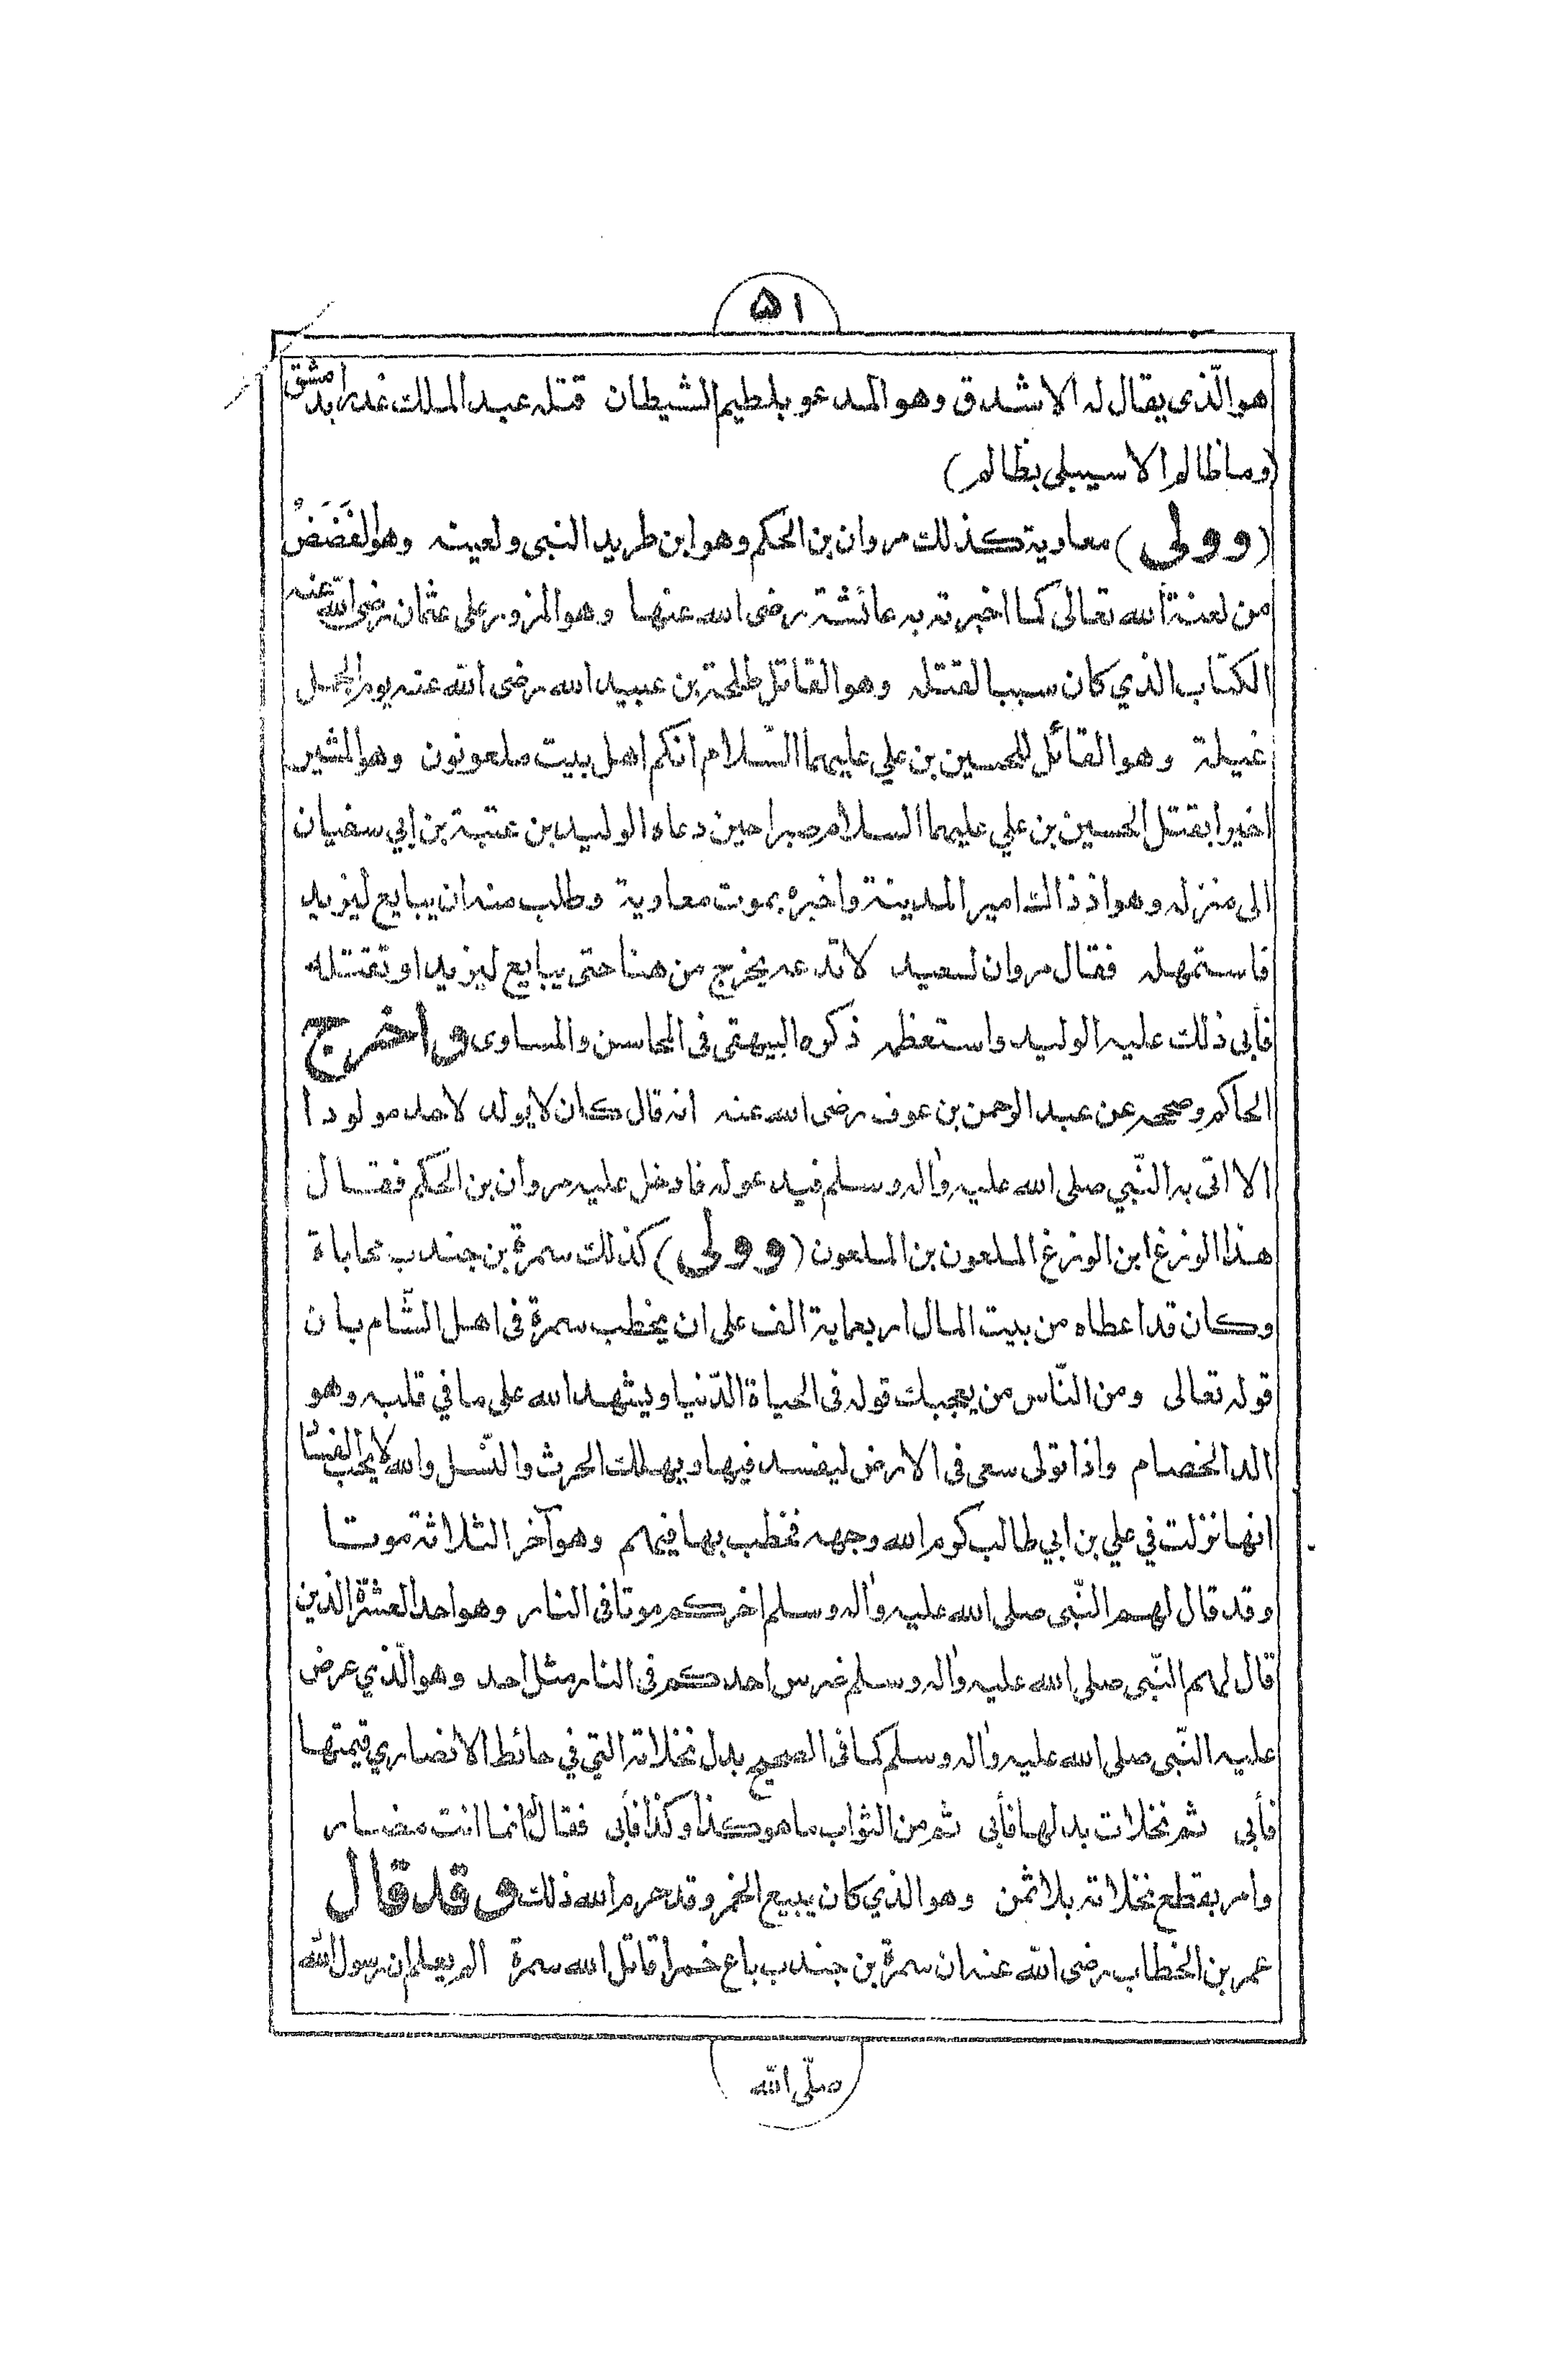 ٥١
هو الّذي يقال له الاشدق وهو المدعو بلطيم الشيطان قتله عبد الملك غدرا بدمشق
(وما ظالم الا سيبلى بظالم)
(وولى) معاوية كذلك مروان بن الحكم وهو ابن طريد النبي ولعينه وهو الفَضَضُ
من لعنة الله تعالى كما اخبرته به عائشة رضى الله عنها وهو المزور على عثمان رضى الله عنه
الكتاب الذي كان سببا لقتله وهو القاتل طلحة بن عبيد الله رضى الله عنه يوم الجمل
غيلة وهو القائل للحسين بن علي عليهما السّلام انكم اهل بيت ملعونون وهو المشير
اخيرا بقتل الحسين بن علي عليهما السلام صبرا حين دعاه الوليد بن عتبة بن ابي سفيان
الى منزله وهو اذ ذاك امير المدينة واخبره بموت معاوية وطلب منه ان يبايع ليزيد
فاستمهله فقال مروان لسعيد لا تدعه يخرج من هنا حتى يبايع ليزيد او تقتله
فأبى ذلك عليه الوليد واستعظمه ذكره البيهقى فى المحاسن والمساوى واخرج
الحاكم وصححه عن عبد الرحمن بن عوف رضى الله عنه انه قال كان لا يولد لاحد مولودا
الا اتى به النّبي صلى الله عليه واله وسلم فيدعو له فادخل عليه مروان بن الحكم فقال
هذا الوزغ ابن الوزغ الملعون بن الملعون (وولى) كذلك سمرة بن جندب محاباة
وكان قد اعطاه من بيت المال اربعماية الف على ان يخطب سمرة فى اهل الشّام بان
قوله تعالى ومن النّاس من يعجبك قوله فى الحياة الدّنيا ويشهد الله على ما في قلبه وهو
الد الخصام واذا تولى سعى فى الارض ليفسد فيها ويهلك الحرث والنّسل والله لا يحب الفساد
انها نزلت في علي بن ابي طالب كرم الله وجهه فخطب بها فيهم وهو آخر الثلاثة موتا
وقد قال لهم النّبي صلى الله عليه واله وسلم اخركم موتا فى النار وهو احد العشرة الذين
قال لهم النّبي صلى الله عليه واله وسلم ضرس احدكم فى النار مثل احد وهو الّذي عرض
عليه النّبي صلى الله عليه واله وسلم كما فى الصحيح بدل نخلاته التي في حائط الانصاري قيمتها
فأبى ثم نخلات بدلها فأبى ثم من الثواب ما هو كذا وكذا فأبى فقال انما انت مضار
وامر بقطع نخلاته بلا ثمن وهو الذي كان يبيع الخمر وقد حرم الله ذلك وقد قال
عمر بن الخطاب رضى الله عنه ان سمرة بن جندب باع خمرا قاتل الله سمرة الم يعلم ان رسول الله
صلّى الله